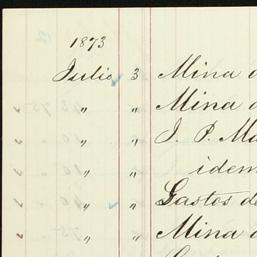 1873
Julio 3 Mina d
" " Mina d
" " J. P. Ma
" " idem
" " Gastos de
" " Mina d